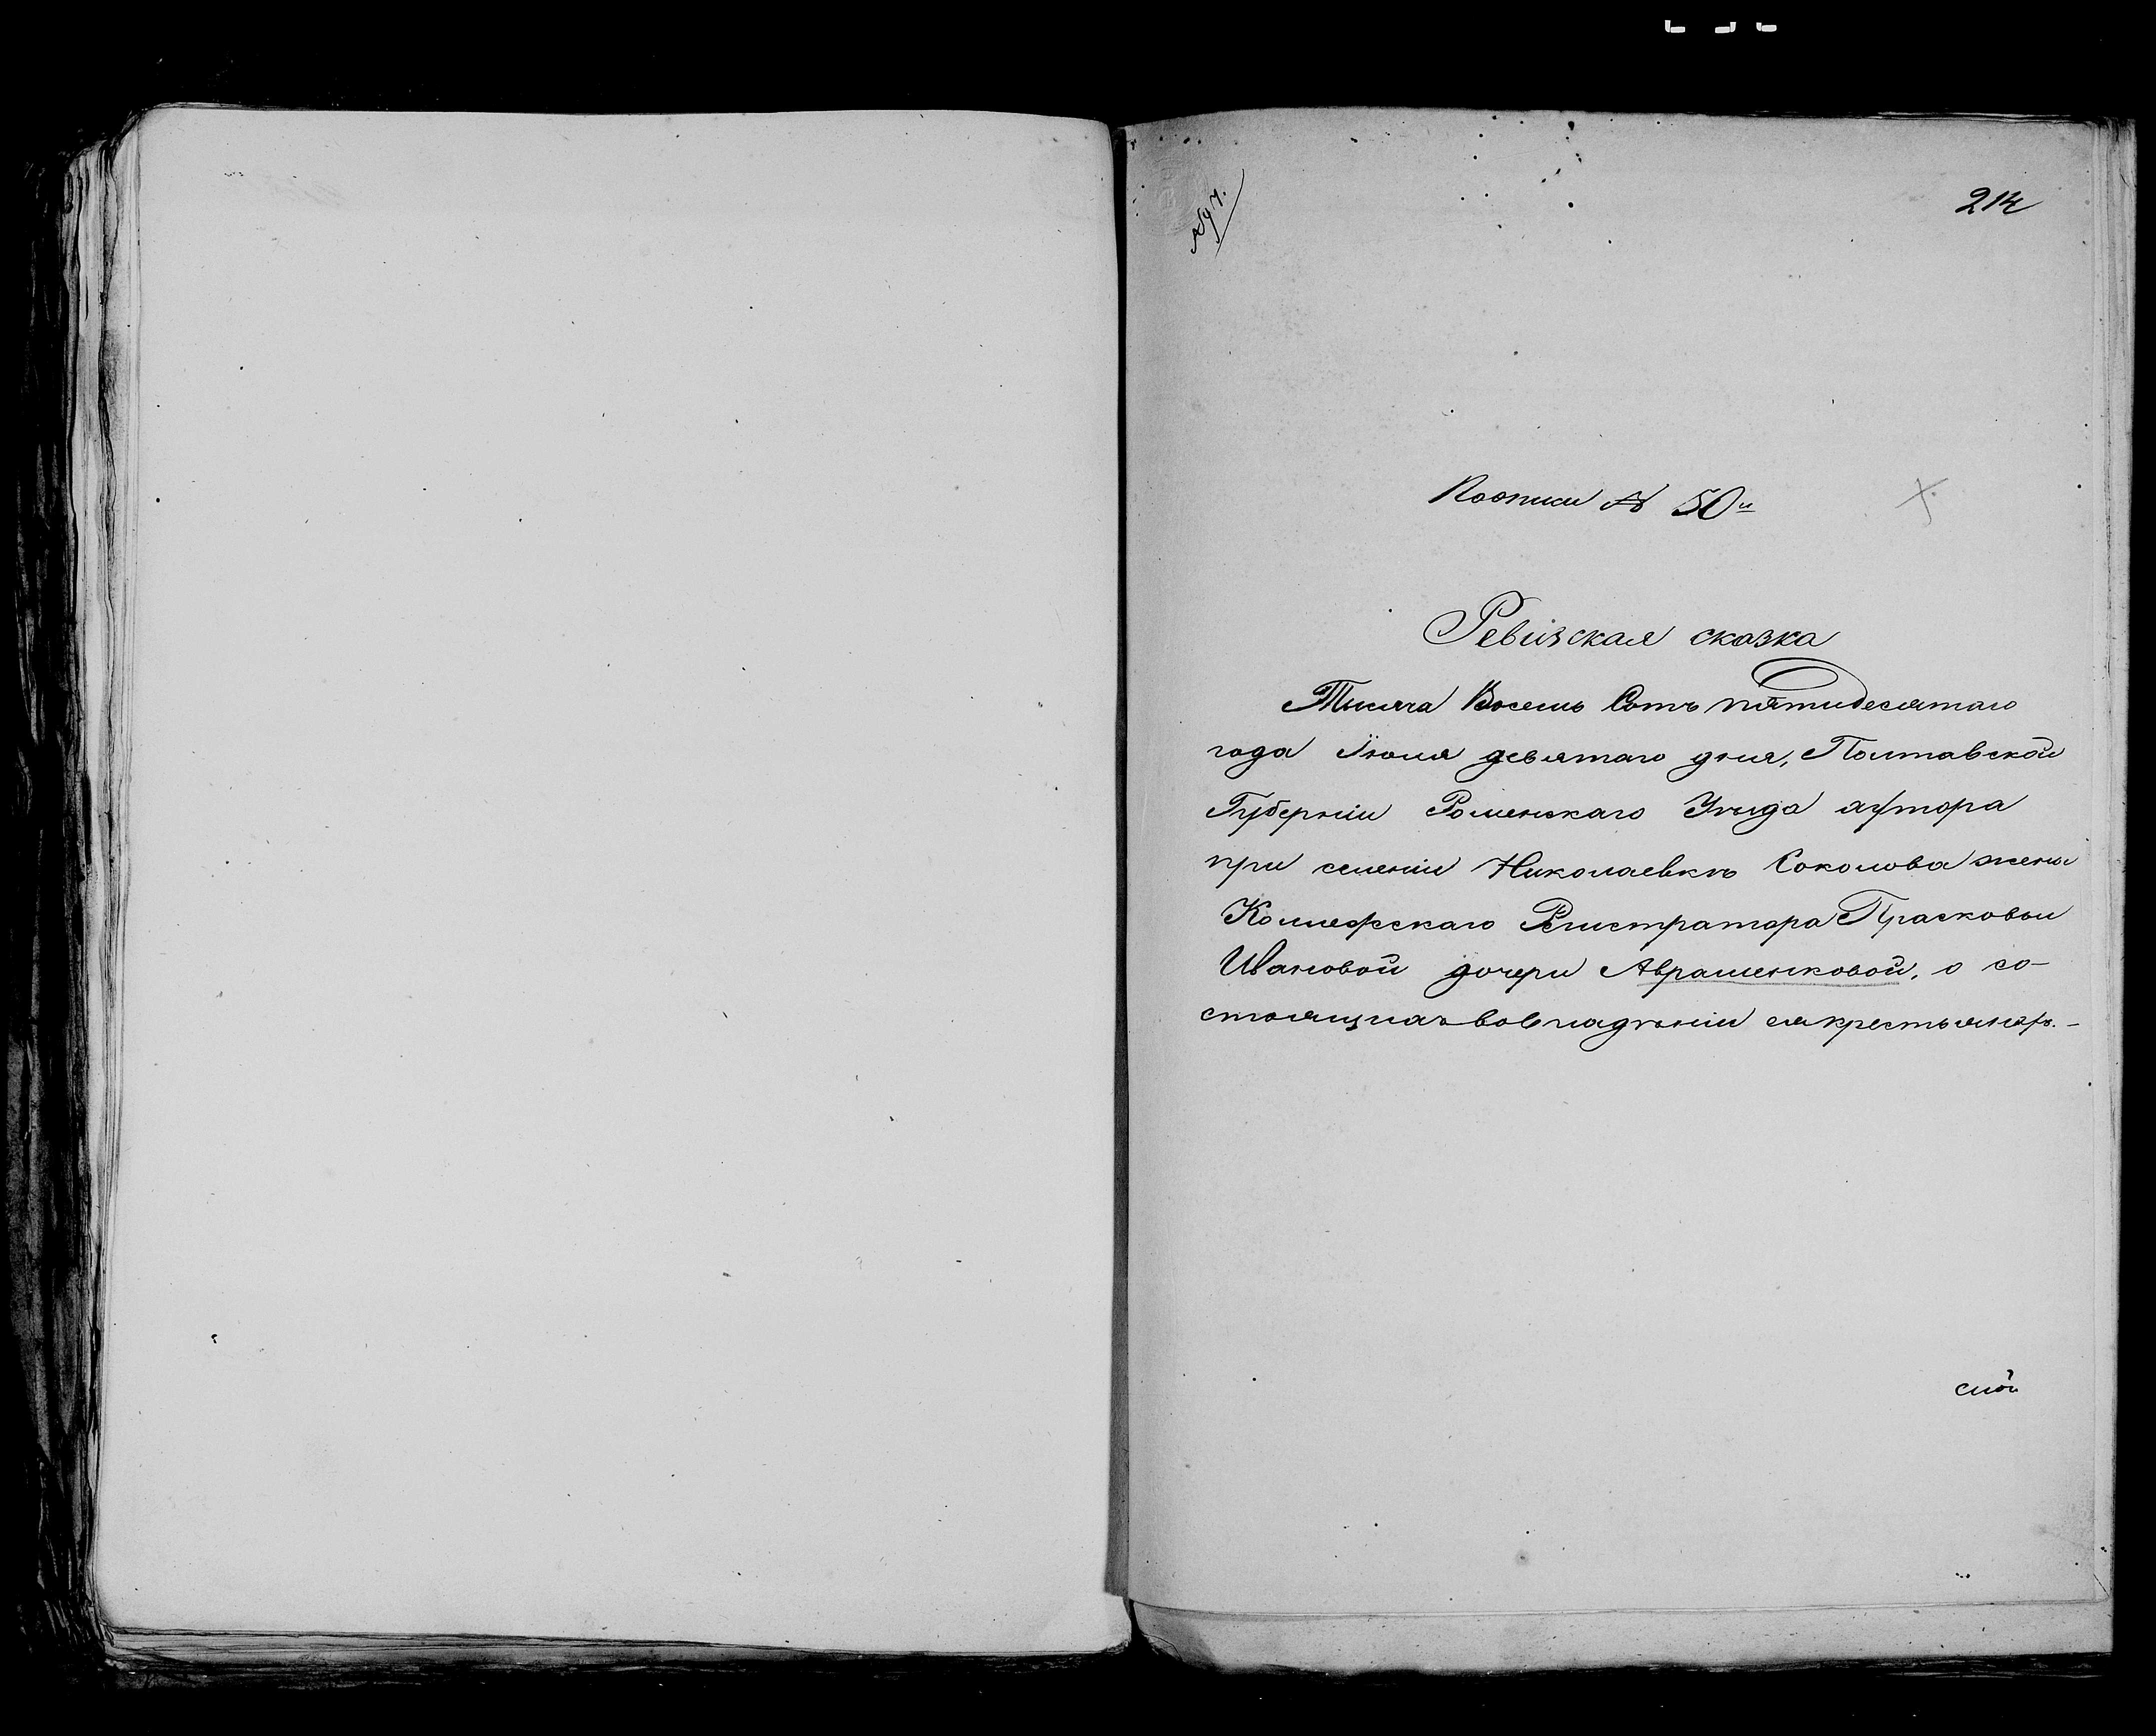 214
Поописи № 50й
Ревизская сказка
Тысяча Восемь Сотъ пятидесятаго
года Іюля девятаго дня, Полтавской
Губерніи Роменскаго Уѣзда хутора
при селеніи Николаевкѣ Соколова жены
Коллежскаго Регистратора Прасковьи
Ивановой дочери Авраменковой, о со-
стоящихъ вовладѣніи ея крестьянахъ.-